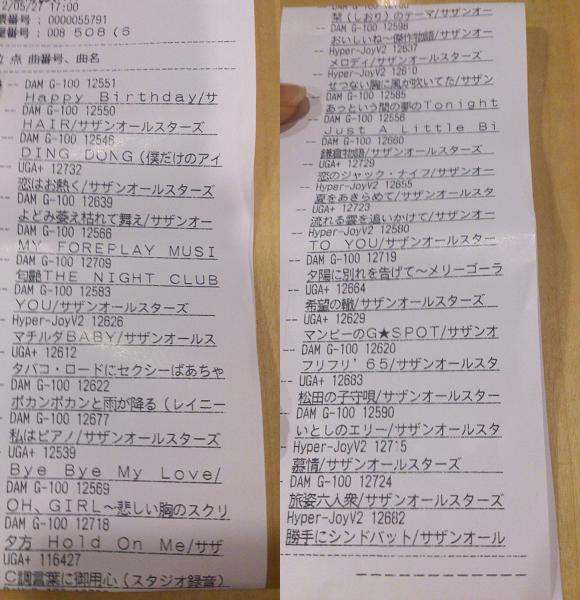 2/05/27 17:00
票番号 : 0000055791
番号 : 008 508 (5
点 曲番号、曲名
-- DAM G-100 12551
Happy Birthday/サ
-- DAM G-100 12550
HAIR/サザンオールスターズ
-- DAM G-100 12546
DING DONG(僕だけのアイ
UGA+ 12732
恋はお熱く/サザンオールスターズ
DAM G-100 12639
よどみ萎え枯れて舞え/サザンオー
DAM G-100 12566
MY FOREPLAY MUSI
DAM G-100 12709
匂艶THE NIGHT CLUB
DAM G-100 12583
YOU/サザンオールスターズ
Hyper-JoyV2 12626
マチルダBABY/サザンオールス
UGA+ 12612
タバコ・ロードにセクシーばあちゃ
DAM G-100 12622
ボカンボカンと雨が降る(レイニー
DAM G-100 12677
私はピアノ/サザンオールスターズ
UGA+ 12539
Bye Bye My Love/
DAM G-100 12569
OH、GIRL〜悲しい胸のスクリ
DAM G-100 12718
夕方 Hold On Me/サザ
UGA+ 116427
C調言葉に御用心(スタジオ録音)
栞(しおり)のテーマ/サザンオー
-- DAM G-100 12598
おいしいね〜傑作物語/サザンオー
Hyper-JoyV2 12637
メロディ/サザンオールスターズ
-- Hyper-JoyV2 12610
せつない胸に風が吹いてた/サザン
DAM G-100 12585
あっという間の夢のTonight
-- DAM G-100 12556
Just A Little Bi
-- DAM G-100 12660
鎌倉物語/サザンオールスターズ
-- UGA+ 12729
恋のジャック・ナイフ/サザンオー
-- Hyper-JoyV2 12655
夏をあきらめて/サザンオールスタ
-- UGA+ 12723
流れる雲を追いかけて/サザンオー
-- Hyper-JoyV2 12580
TO YOU/サザンオールスター
-- DAM G-100 12719
夕陽に別れを告げて〜メリーゴーラ
-- UGA+ 12664
希望の轍/サザンオールスターズ
-- UGA+ 12629
マンピーのG★SPOT/サザンオ
-- DAM G-100 12620
フリフリ'65/サザンオールスタ
-- UGA+ 12683
松田の子守唄/サザンオールスター
-- DAM G-100 12590
いとしのエリー/サザンオールスタ
-- Hyper-JoyV2 12715
慕情/サザンオールスターズ
-- DAM G-100 12724
旅姿六人衆/サザンオールスターズ
Hyper-JoyV2 12682
勝手にシンドバット/サザンオール